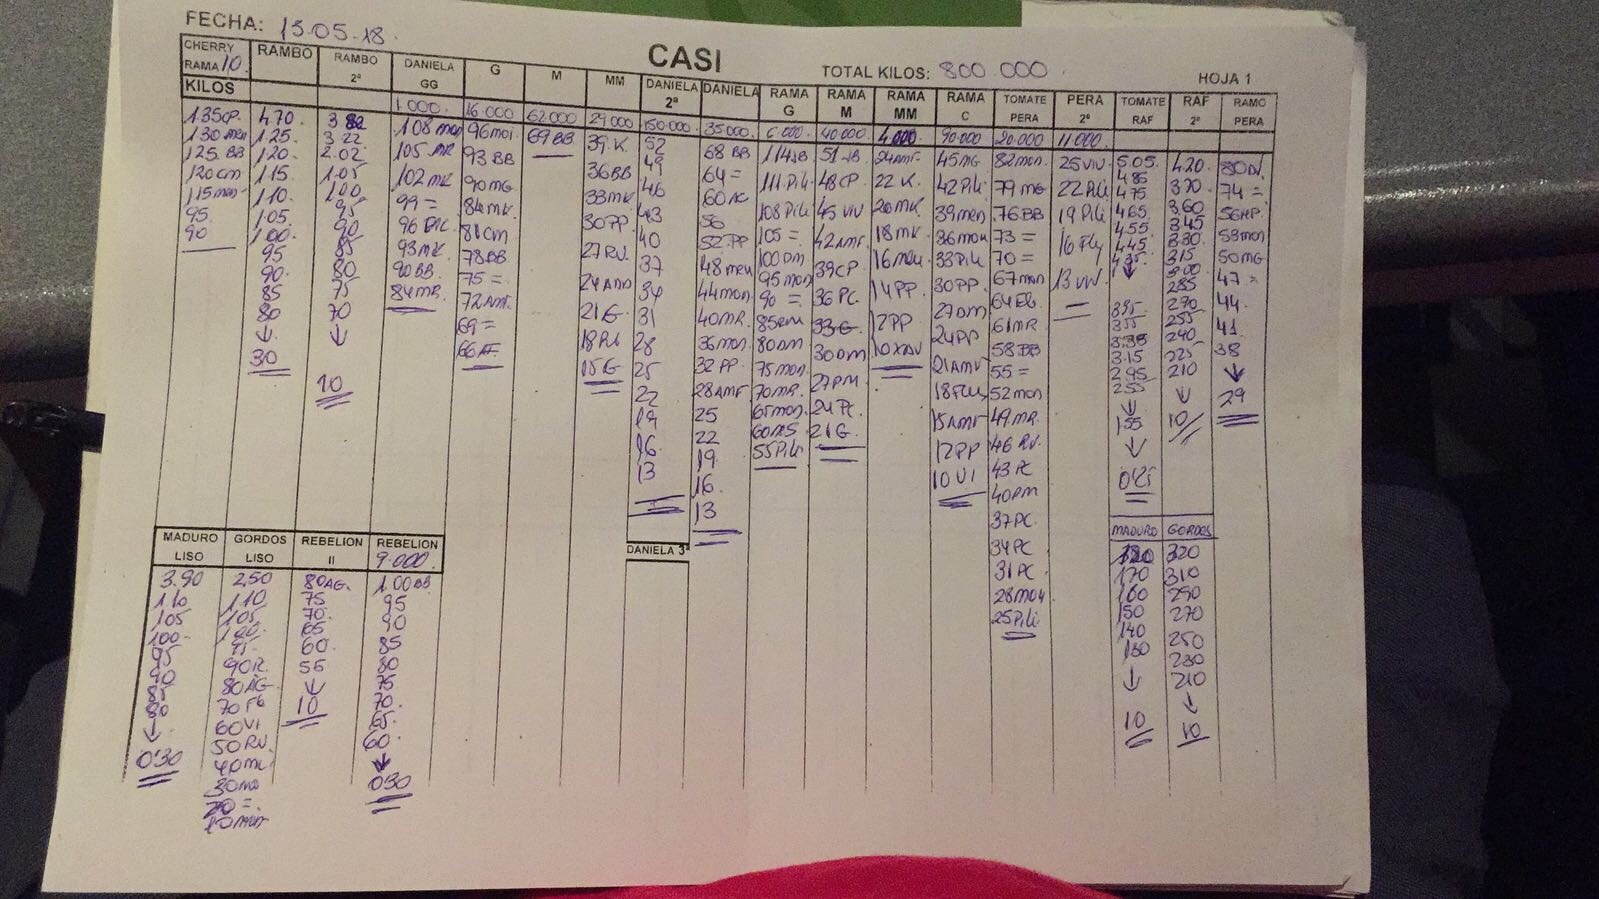 FECHA: 15.05.18.
CASI
TOTAL KILOS: 800.000
HOJA 1
CHERRY RAMA 10 RAMBO RAMBO 2ª DANIELA GG G M MM DANIELA 2ª DANIELA RAMA G RAMA M RAMA MM RAMA C TOMATE PERA PERA 2ª TOMATE RAF RAF 2ª RAMO PERA
KILOS 1.000 16.000 62.000 29.000 150.000 35.000 6.000 40.000 4.000 90.000 20.000 11.000
135CP.
130 men
125 BB
120 cm
115 mon
95
90
4.70
1.25
120
115
110
105
100
95
90
85
80
↓
30
3.22
2.02
1.05
100
95
90
85
80
75
70
↓
10
108 mon
105 MR
102 MK
99 =
93 MK
90 BB
84 MR
96 moi
93 BB
90 MG
84 MK
81 cm
78 BB
75 =
72 AMF
69 =
69 BB
39 K
36 BB
33 MK
30 PP
27 RV
21 G
15 G
52
49
46
43
40
37
34
31
28
25
22
19
16
13
68 BB
64 =
60 AC
56
52 PP
48 men
44 mon
40 MR
36 mon
32 PP
28 AMF
25
22
19
16
13
111 Pili
108 Pili
105 =
100 DM
95 mon
90 =
80 DM
75 mon
70 MR
65 mon
55 Pili
48 CP
45 VIV
42 AMF
39 CP
36 PC
33 G
30 DM
27 PM
24 PC
21 G
24 AMF
22 K
20 MK
18 MK
16 men
14 PP
12 PP
45 MG
42 Pili
39 men
36 mon
33 Pili
30 PP
27 DM
24 PP
21 AMV
15 AMF
12 PP
10 VI
82 mon
79 MG
76 BB
73 =
70 =
67 mon
61 MR
58 BB
55 =
52 mon
49 MR
46 RV
43 PC
40 PM
37 PC
34 PC
31 PC
28 mon
25 Pili
25 VIV
22 Pili
19 Pili
16 Fly
13 VIV
5.05
4.85
4.75
4.65
4.55
4.45
4.35
↓
3.55
3.35
3.15
2.95
2.55
↓
1.55
↓
4.20
3.60
3.45
3.30
3.15
3.00
2.85
2.70
2.55
2.40
2.25
2.10
↓
10
74 =
53 mon
50 MG
47 =
44
41
38
↓
29
MADURO LISO GORDOS LISO REBELION II REBELION 9.000 DANIELA 3ª MADURO GORDOS
3.90
1.10
105
100
95
90
85
80
↓
0'30
2.50
1.10
105
100
90 R
80 AG
60 VI
50 RV
70 =
80 AG.
75
70
65
60
55
↓
10
1.00 BB
95
90
85
80
75
70
65
60
↓
0'30
170
160
150
140
130
↓
10
320
310
290
270
250
230
210
↓
10